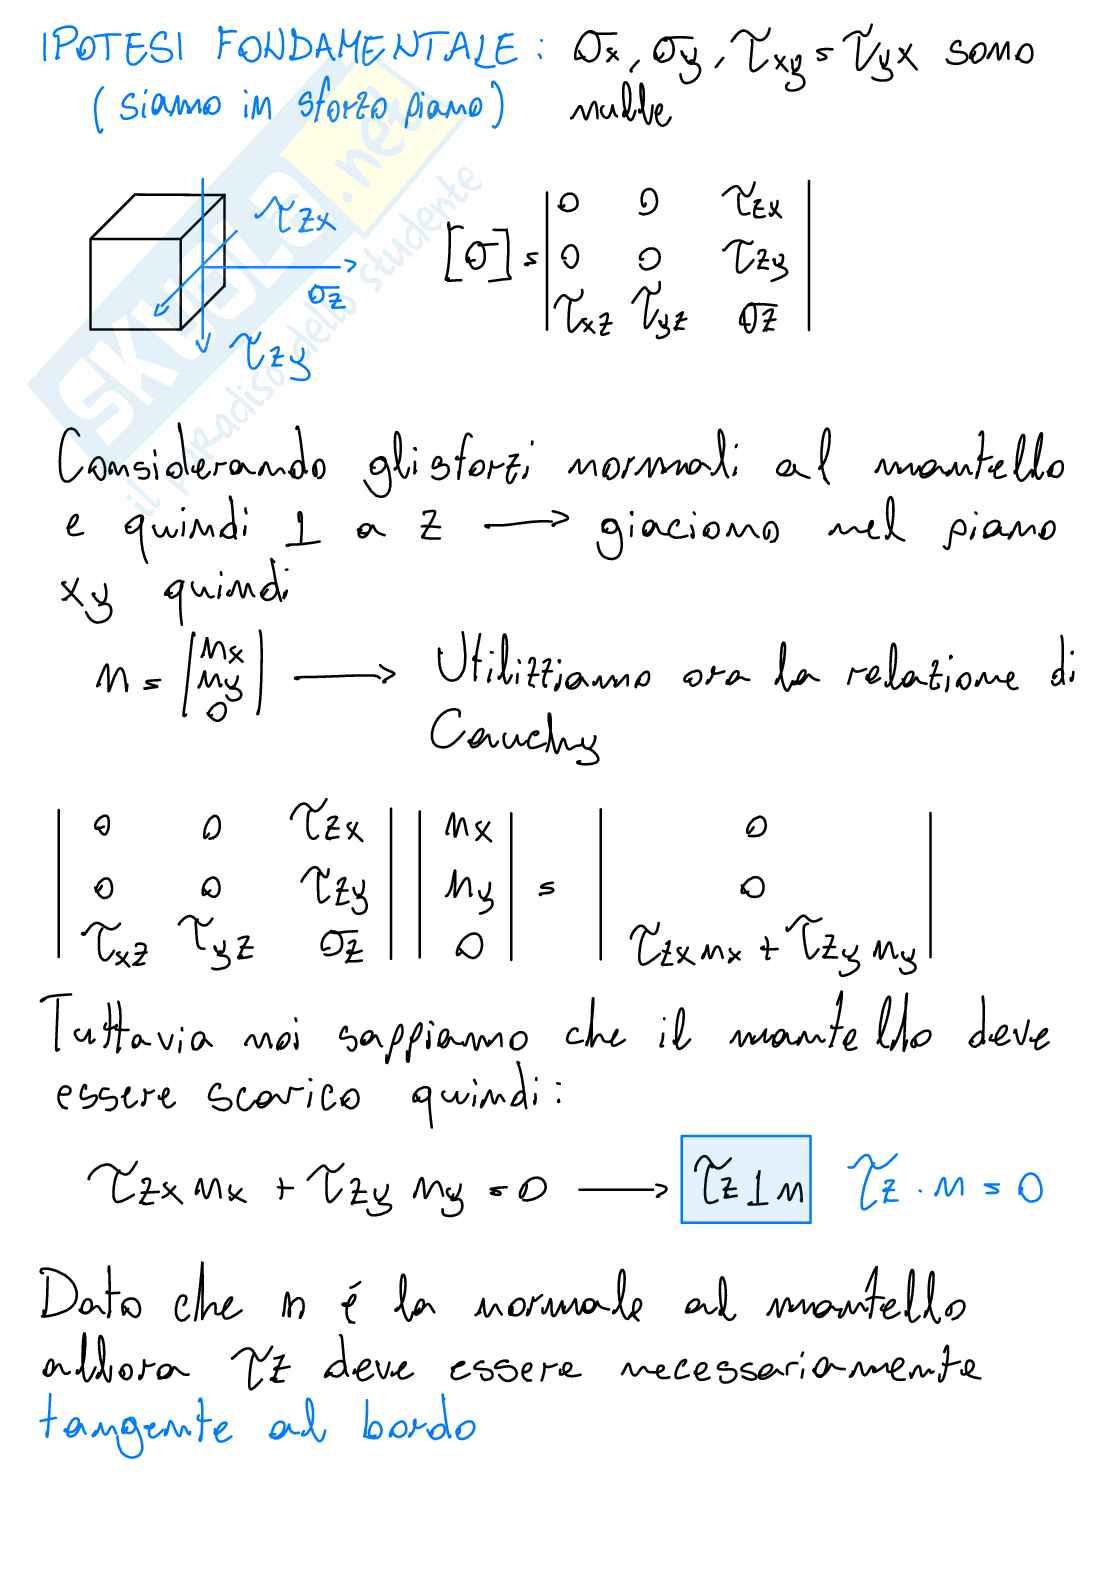 IPOTESI FONDAMENTALE: σx, σy, τxy = τyx sono
(siamo in sforzo piano) nulle
SKUOLA.net
il paradiso dello studente
τzx
σz
τzy
[σ] = | 0 0 τzx |
| 0 0 τzy |
| τxz τyz σz |
Considerando gli sforzi normali al mantello
e quindi ⊥ a z → giacciono nel piano
xy quindi
n = | nx ny 0 | → Utilizziamo ora la relazione di
Cauchy
| 0 0 τzx | | nx | = | 0 |
| 0 0 τzy | | ny | = | 0 |
| τxz τyz σz | | 0 | | τzx nx + τzy ny |
Tuttavia noi sappiamo che il mantello deve
essere scarico quindi:
τzx nx + τzy ny = 0 → τz ⊥ n τz · n = 0
Dato che n é la normale al mantello
allora τz deve essere necessariamente
tangente al bordo